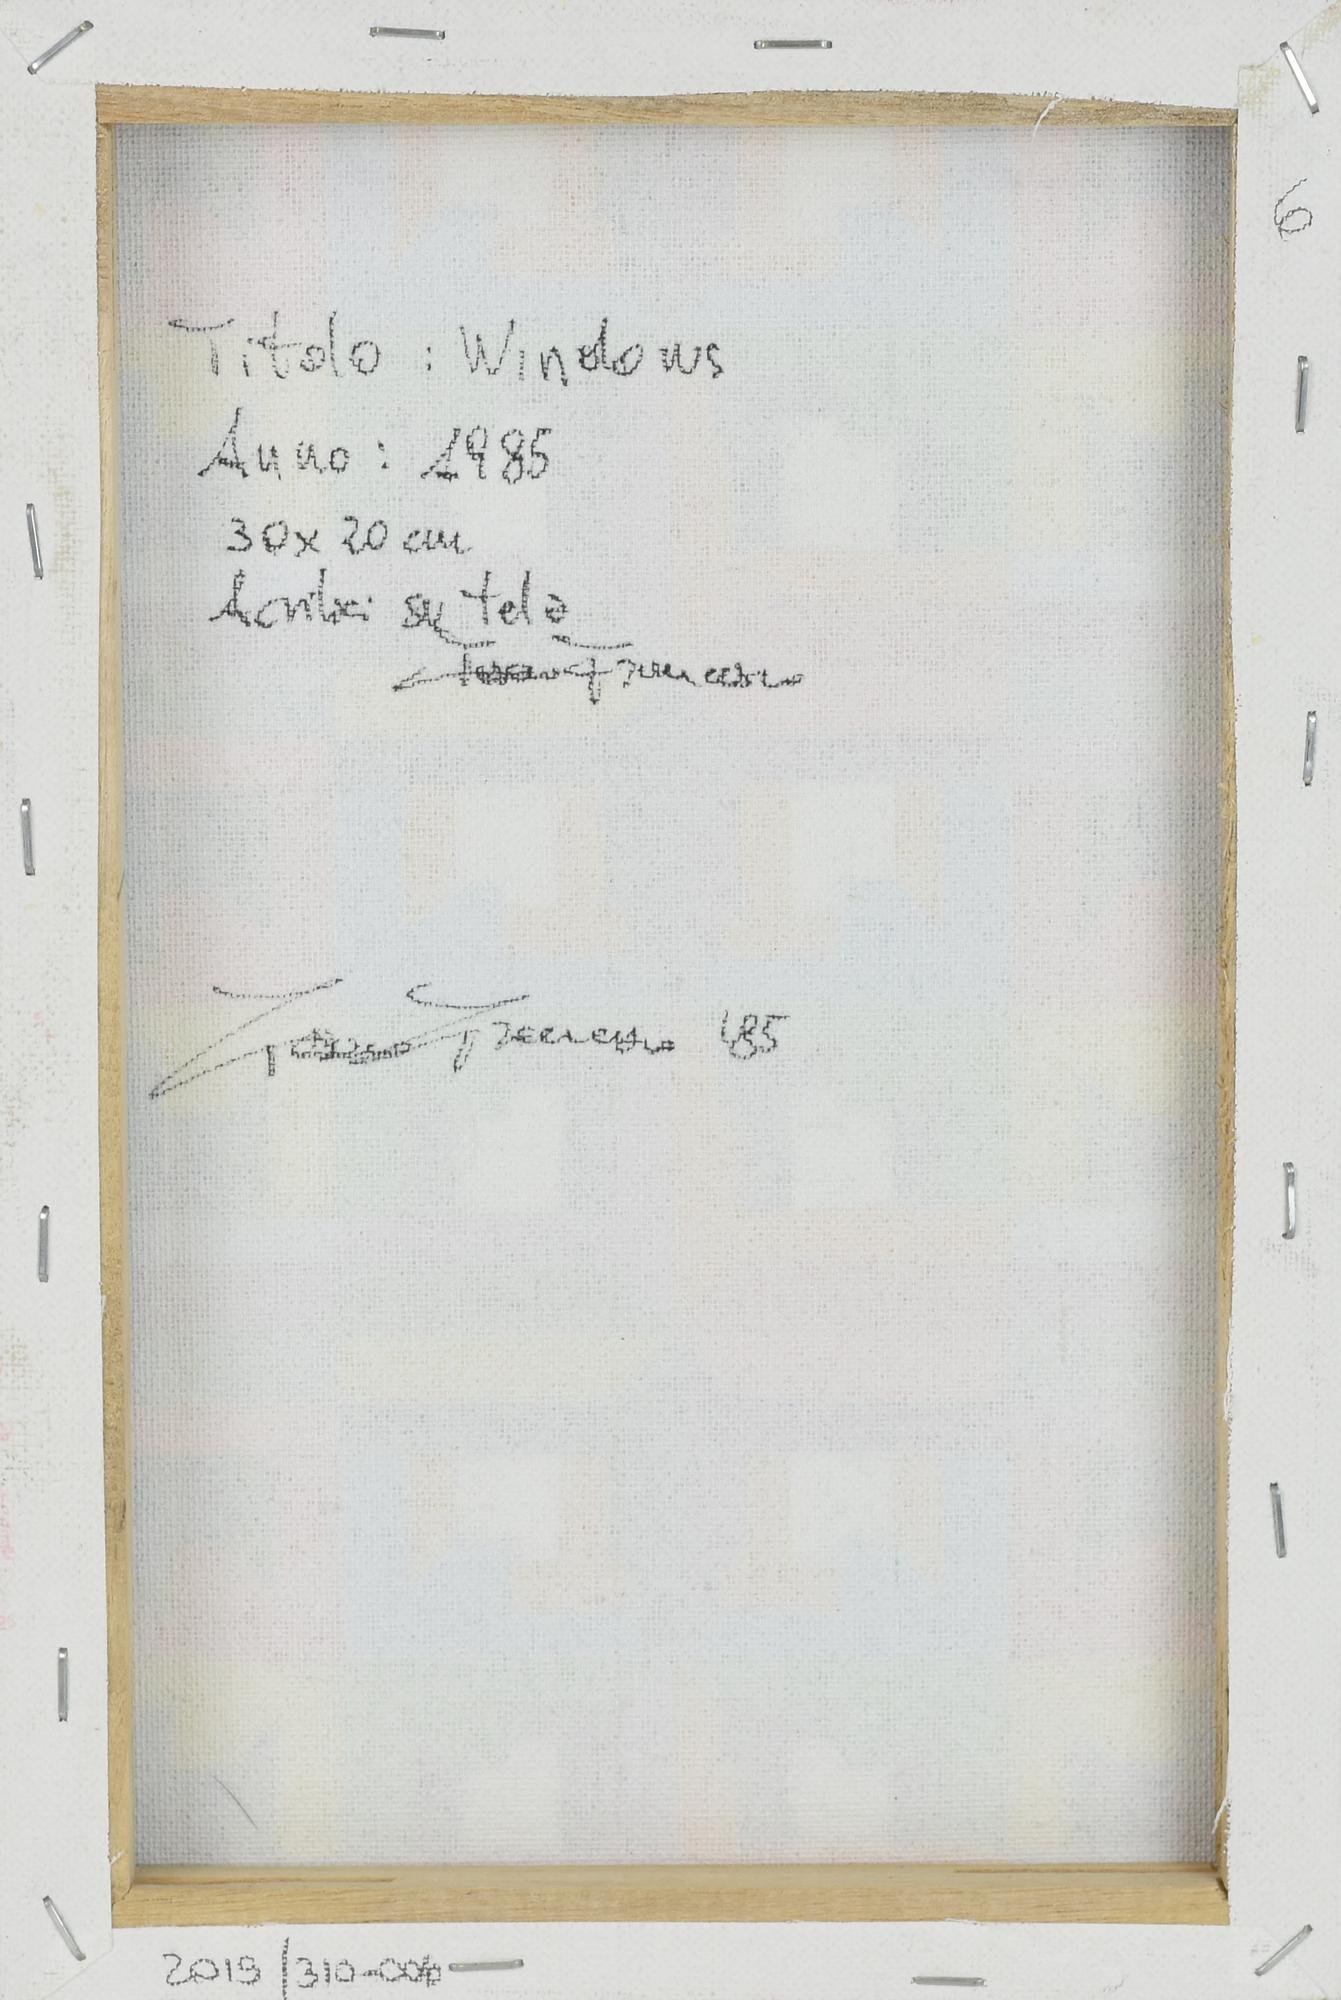 6
Titolo : Windows
Anno : 1985
30x20 cm
su tela
'85
2019/310-006